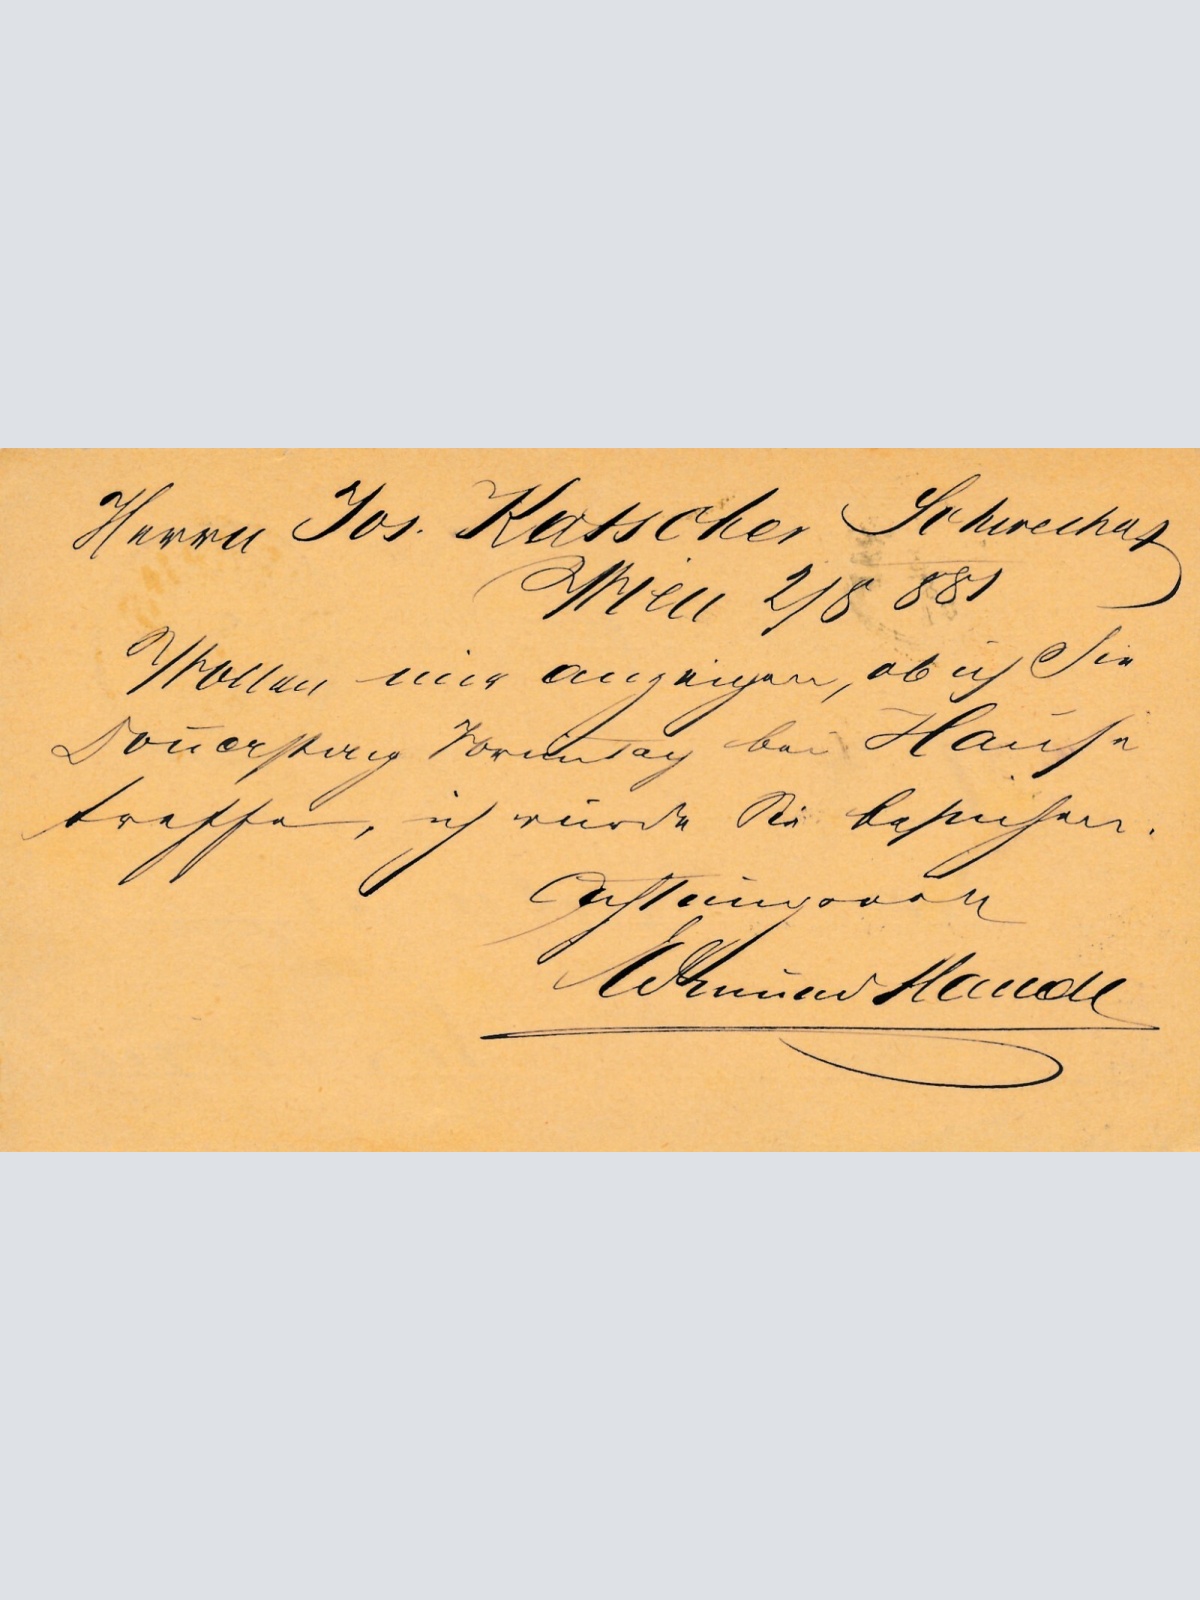 Herrn Jos. Katscher Schwechat
Wien 2/8 881
Wollen mir anzeigen, ob ich Sie
Donnerstag Vormittag bei Hause
treffe, ich würde Sie besuchen.
Achtungsvoll
Edmund Mandl